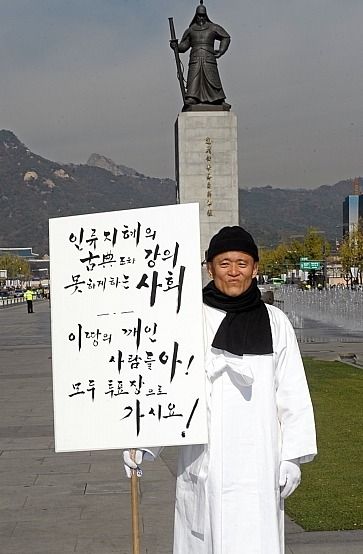 인류 지혜의
古典 조차 강의
못하게 하는 사회
이 땅의 깨인
사람들아!
모두 투표장으로
가시요!